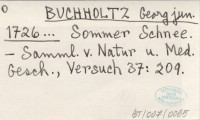 BUCHHOLTZ Georg jun.
1726... Sommer Schnee.
- Samml. v. Natur u. Med.
Gesch., Versuch 37: 209.
BT/007/0065